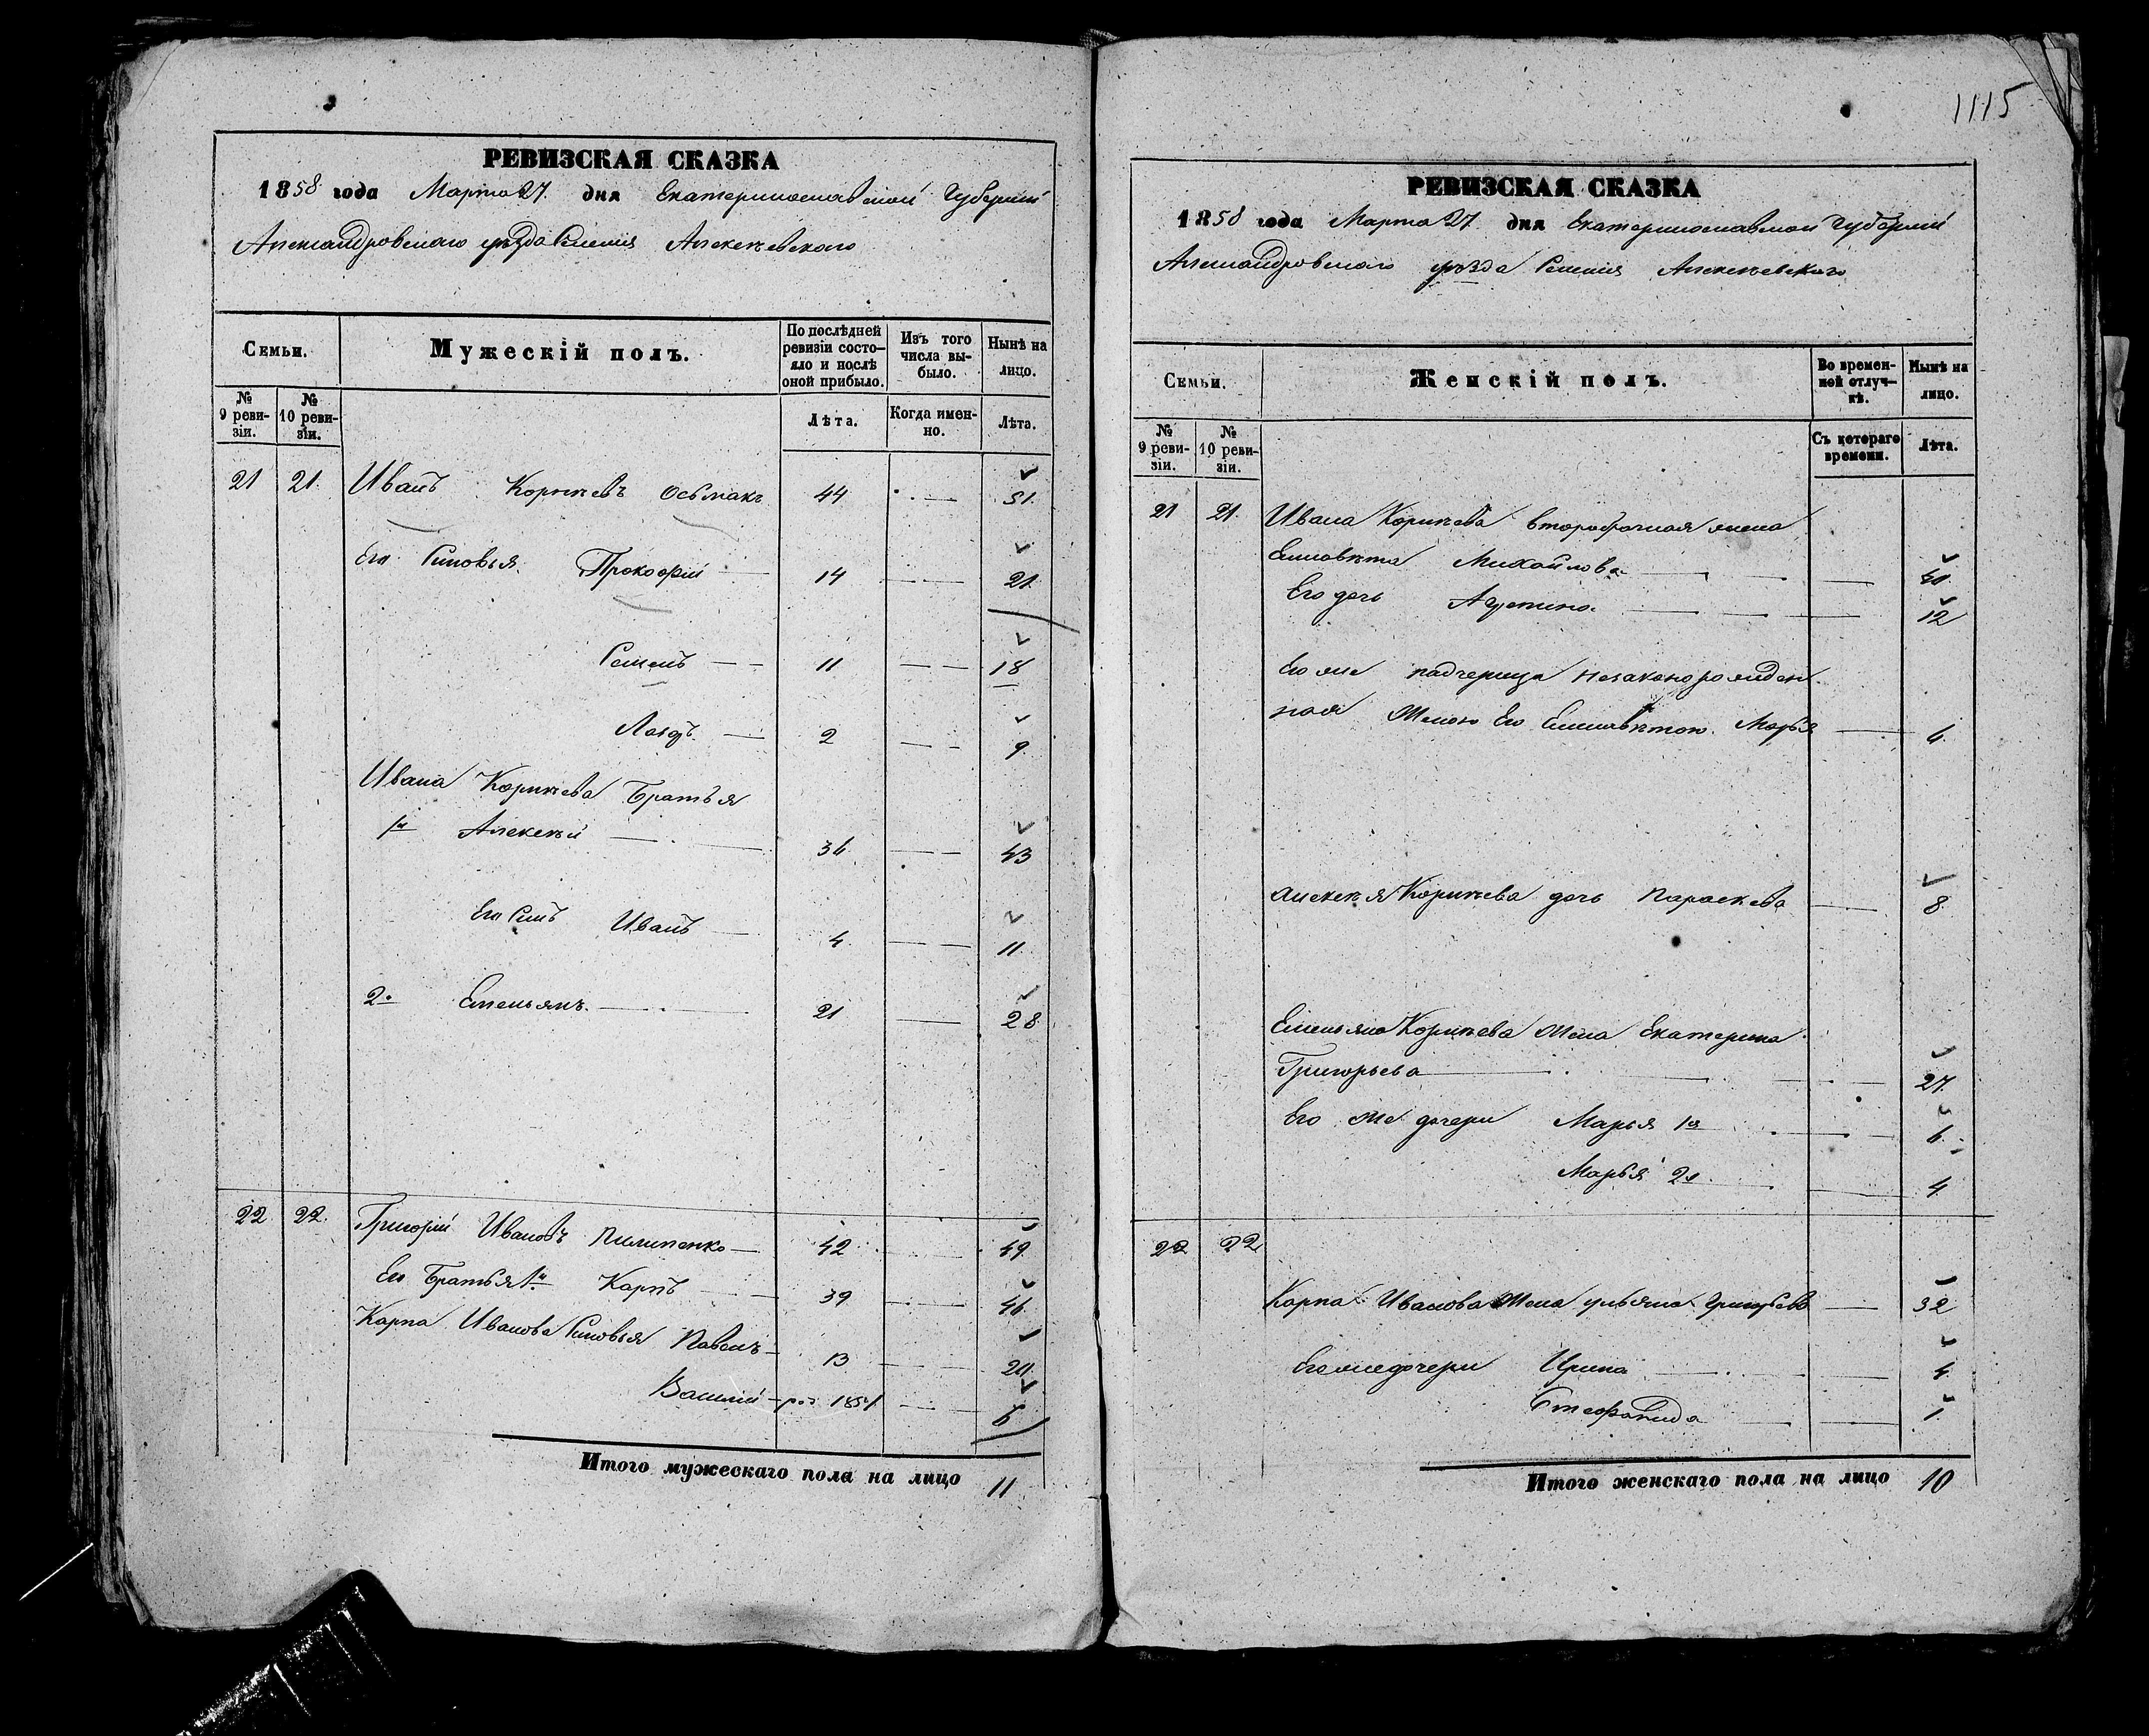 1115
РЕВИЗСКАЯ СКАЗКА
1858 года Марта 27. дня Екатеринославской Губерніи
Александровскаго уѣзда Селенія Алексѣевскаго
Семьи.
Мужескій полъ.
По послѣдней ревизіи состояло и послѣ оной прибыло.
Изъ того числа выбыло.
Нынѣ на лицо.
№ 9 ревизіи.
№ 10 ревизіи.
Лѣта.
Когда именно.
Лѣта.
21 21. Иванъ Корнѣевъ Осьмакъ 44 51.
Его Сыновья. Прокофій 14 21.
Семенъ 11 18
2 9.
Ивана Корнѣева Братья
1й Алексѣй 36 43
Его Сынъ Иванъ 4. 11.
2й Емельянъ. 21 28.
22 22. Григорій Ивановъ Пилипенко 42 49.
Его Братья 1й. Карпъ 39 46.
Карпа Иванова Сыновья Павелъ 13 20.
Василій 6
Итого мужескаго пола на лицо 11
РЕВИЗСКАЯ СКАЗКА
1858 года Марта 27. дня Екатеринославской Губерніи
Александровскаго уѣзда Селенія Алексѣевскаго
Семьи.
Женскій полъ.
Во временной отлучкѣ.
Нынѣ на лицо.
№ 9 ревизіи.
№ 10 ревизіи.
Съ котораго времени.
Лѣта.
21 21. Ивана Корнѣева второбрачная жена
Елисавѣта Михайлова
Его дочь 12
Его же падчерица незаконорожден
ная Женою Его Елисавѣтою. Марья 6.
Алексѣя Корнѣева дочь Параскева 8.
Емельяна Корнѣева Жена Екатерина
Григорьева 27.
Его Же дочери Марья 1я 6.
Марья 2я 4.
22 22
Карпа Иванова Жена ульяна Григорьева 32
Его же дочери Ирина 4.
Стефанида 1.
Итого женскаго пола на лицо 10